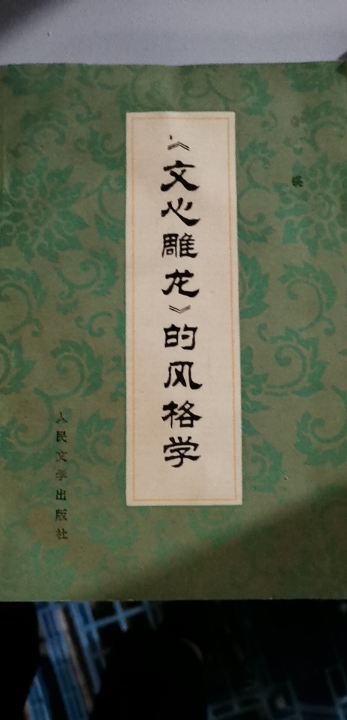 《文心雕龙》的风格学
人民文学出版社